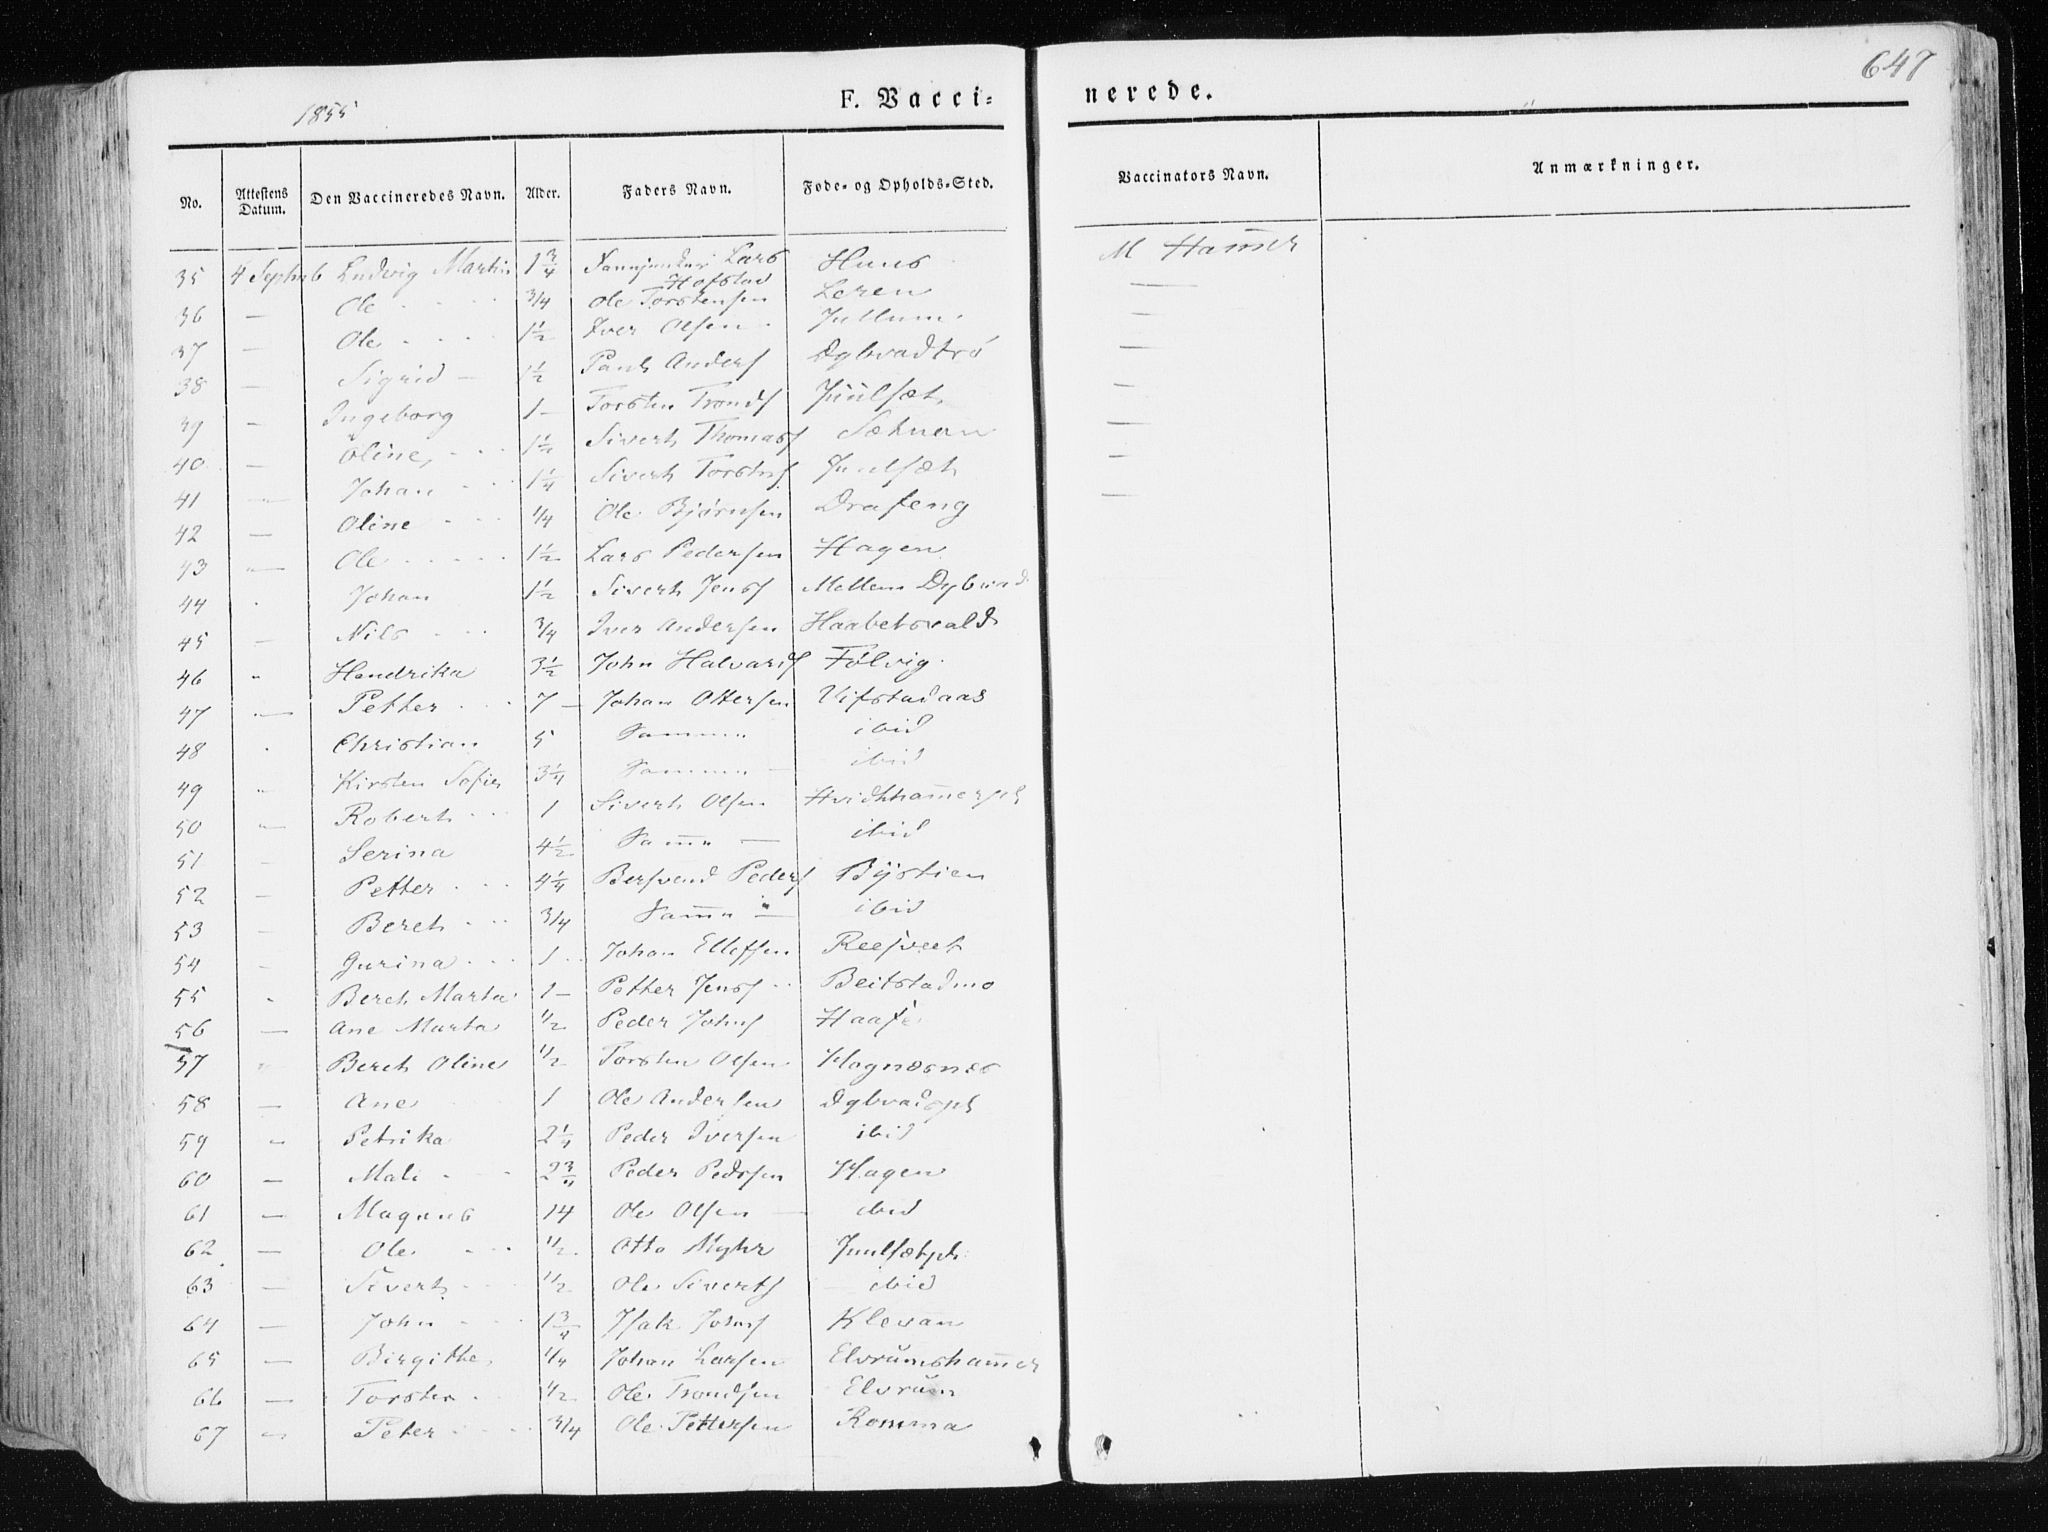 647
1855
F. Vacci= nerede.
No. Attestens Datum. Den Vaccineredes Navn. Alder. Faders Navn. Føde- og Opholds-Sted. Vaccinators Navn. Anmærkninger.
35 4 Septmb Ludvig Martin 1 3/4 Lars Hofstad Huus M Ham̄er
36 — Ole 3/4 Ole Torstensen Leren —
37 — Ole 1 1/2 Iver Olsen Jullum —
38 — Sigrid — 1 1/2 Paul Anders Dybvadtrø —
39 — Ingeborg 1 — Torsten Tronds Juulsæt —
40 — Oline 1 1/2 Sivert Thomass Sætnan —
41 — Johan 1 1/4 Sivert Torsts Juulsæt —
42 — Oline 1/4 Ole Bjørnsen Drafeng —
43 — Ole 1 1/2 Lars Pedersen Hagen
44 Johan 1 1/2 Sivert Jenss Mellem Dybvad
45 — Nils 3/4 Iver Andersen Haabetsvald
46 " Hendrika 3 1/2 John Halvards Følvig
47 — Petter 7 — Johan Ottersen Vifstadaas
48 Christian 5 Samme ibid
49 " Kirsten Sofie 3 1/4 Samme — ibid
50 " Robert 1 Sivert Olsen Hvidtham̄erpl
51 — Serina 4 1/2 Sam̄e — ibid
52 — Petter 4 1/4 Bersvend Peders Bÿstien
53 — Beret 3/4 Sam̄e — ibid
54 — Gurina 1 Johan Ellefsen
55 " Beret Marta 1 — Petter Jenss Beitstadmo
56 — Ane Marta 1/2 Peder Johns
57 " Beret Oline 1/2 Torsten Olsen Hognæsnæs
58 — Ane 1 Ole Andersen Dybvadspl
59 " Petrika 2 1/4 Peder Iversen ibid
60 — Mali 2 3/4 Peder Pedrsen Hagen
61 — Magnus 14 Ole Olsen — ibid
62 — Ole 1/2 Otto Myhr Juulsætpl
63 — Sivert 1/2 Ole Siverts ibid
64 — John 1 3/4 Isak Johns Klevan
65 — Birgitte 1/4 Johan Larsen Elvrumsham̄er
66 — Torsten 1/2 Ole Trondsen Elvrum
67 " Peter 3/4 Ole Pettersen Romma